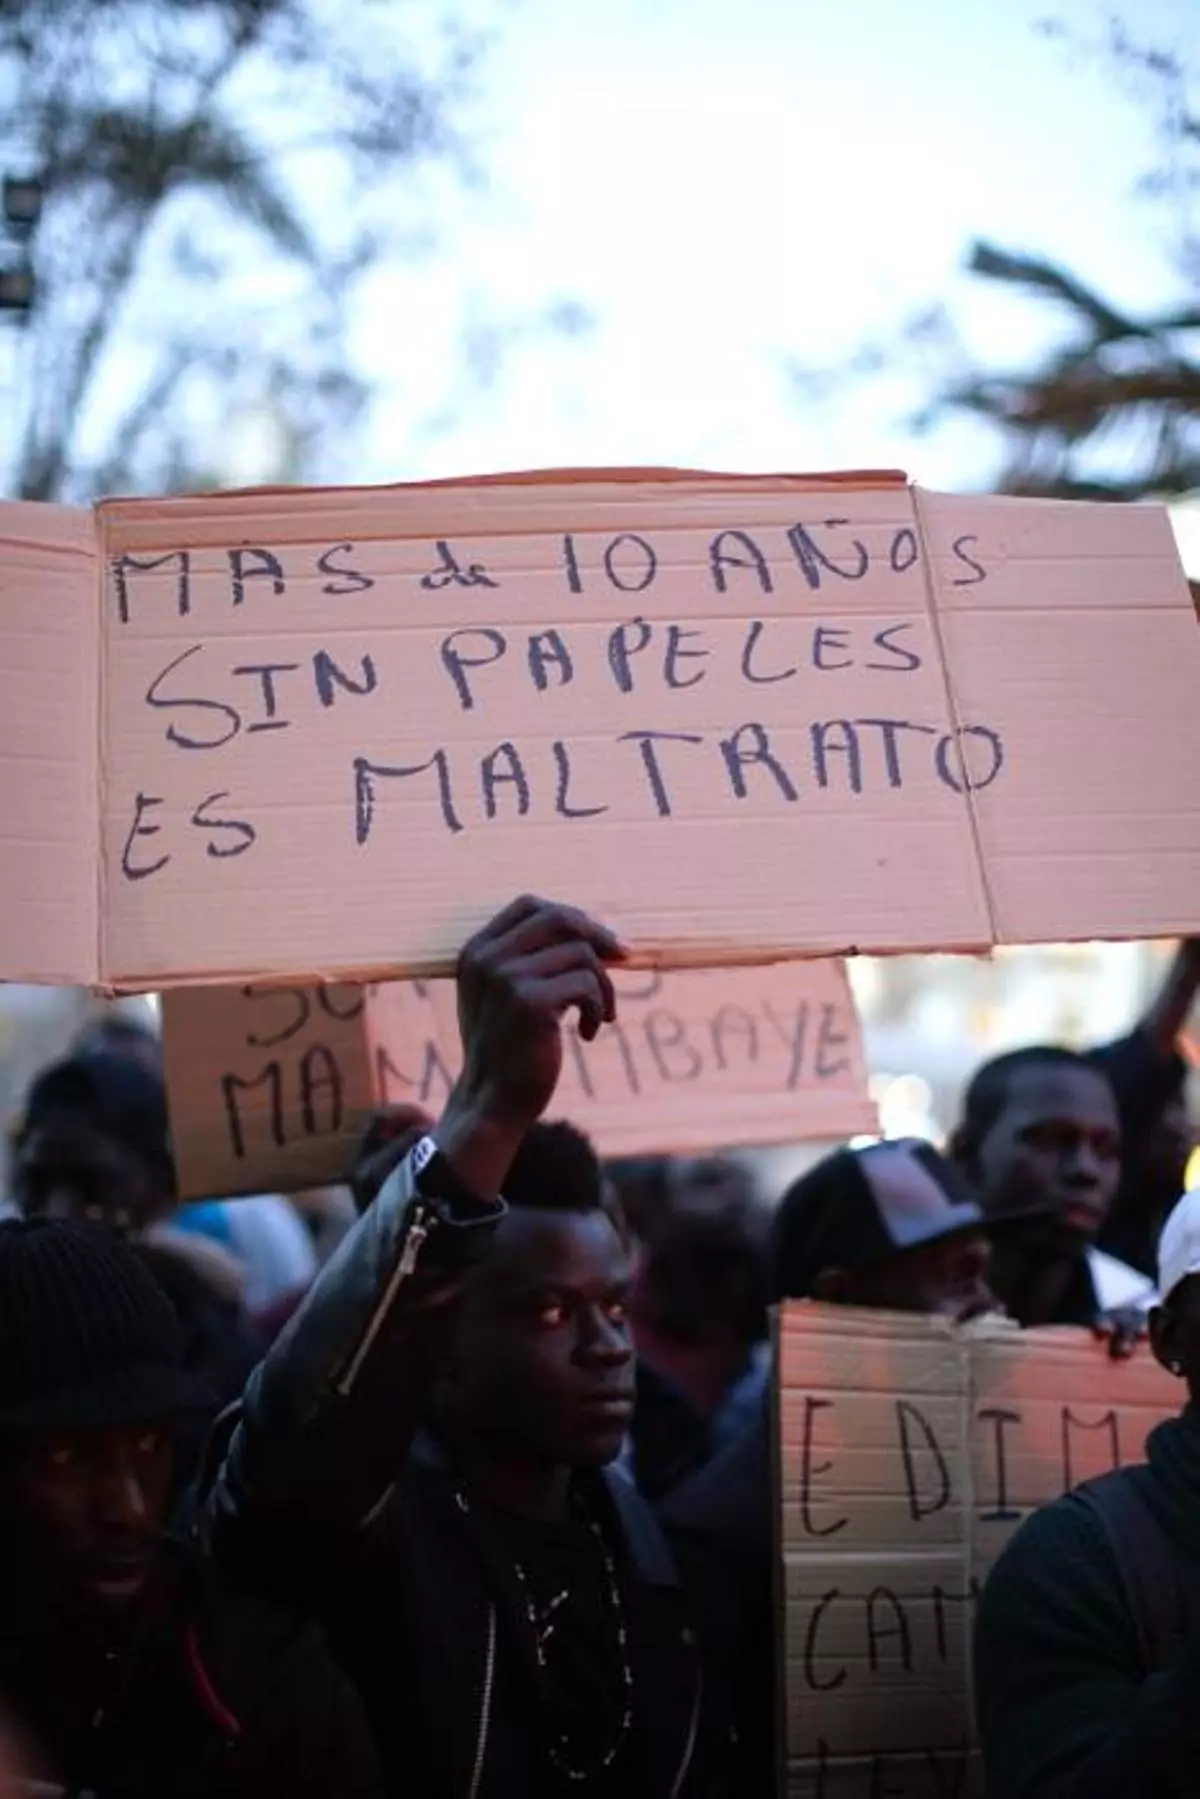 MAS de 10 AÑOS
SIN PAPELES
ES MALTRATO
MAM MBAYE
EDIM
CAN
LEY